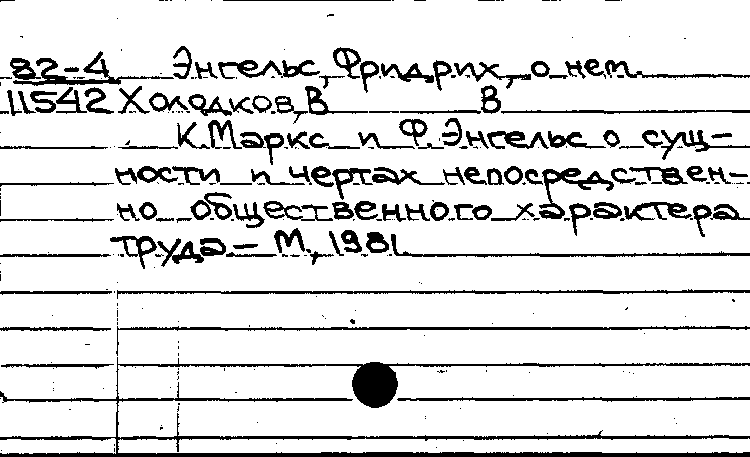 82-4 Энгельс, Фридрих, о нем.
11542 Холодков, В В
К. Маркс и Ф. Энгельс о сущ-
ности и чертах непосредствен-
но общественного характера
труда – М., 1981.